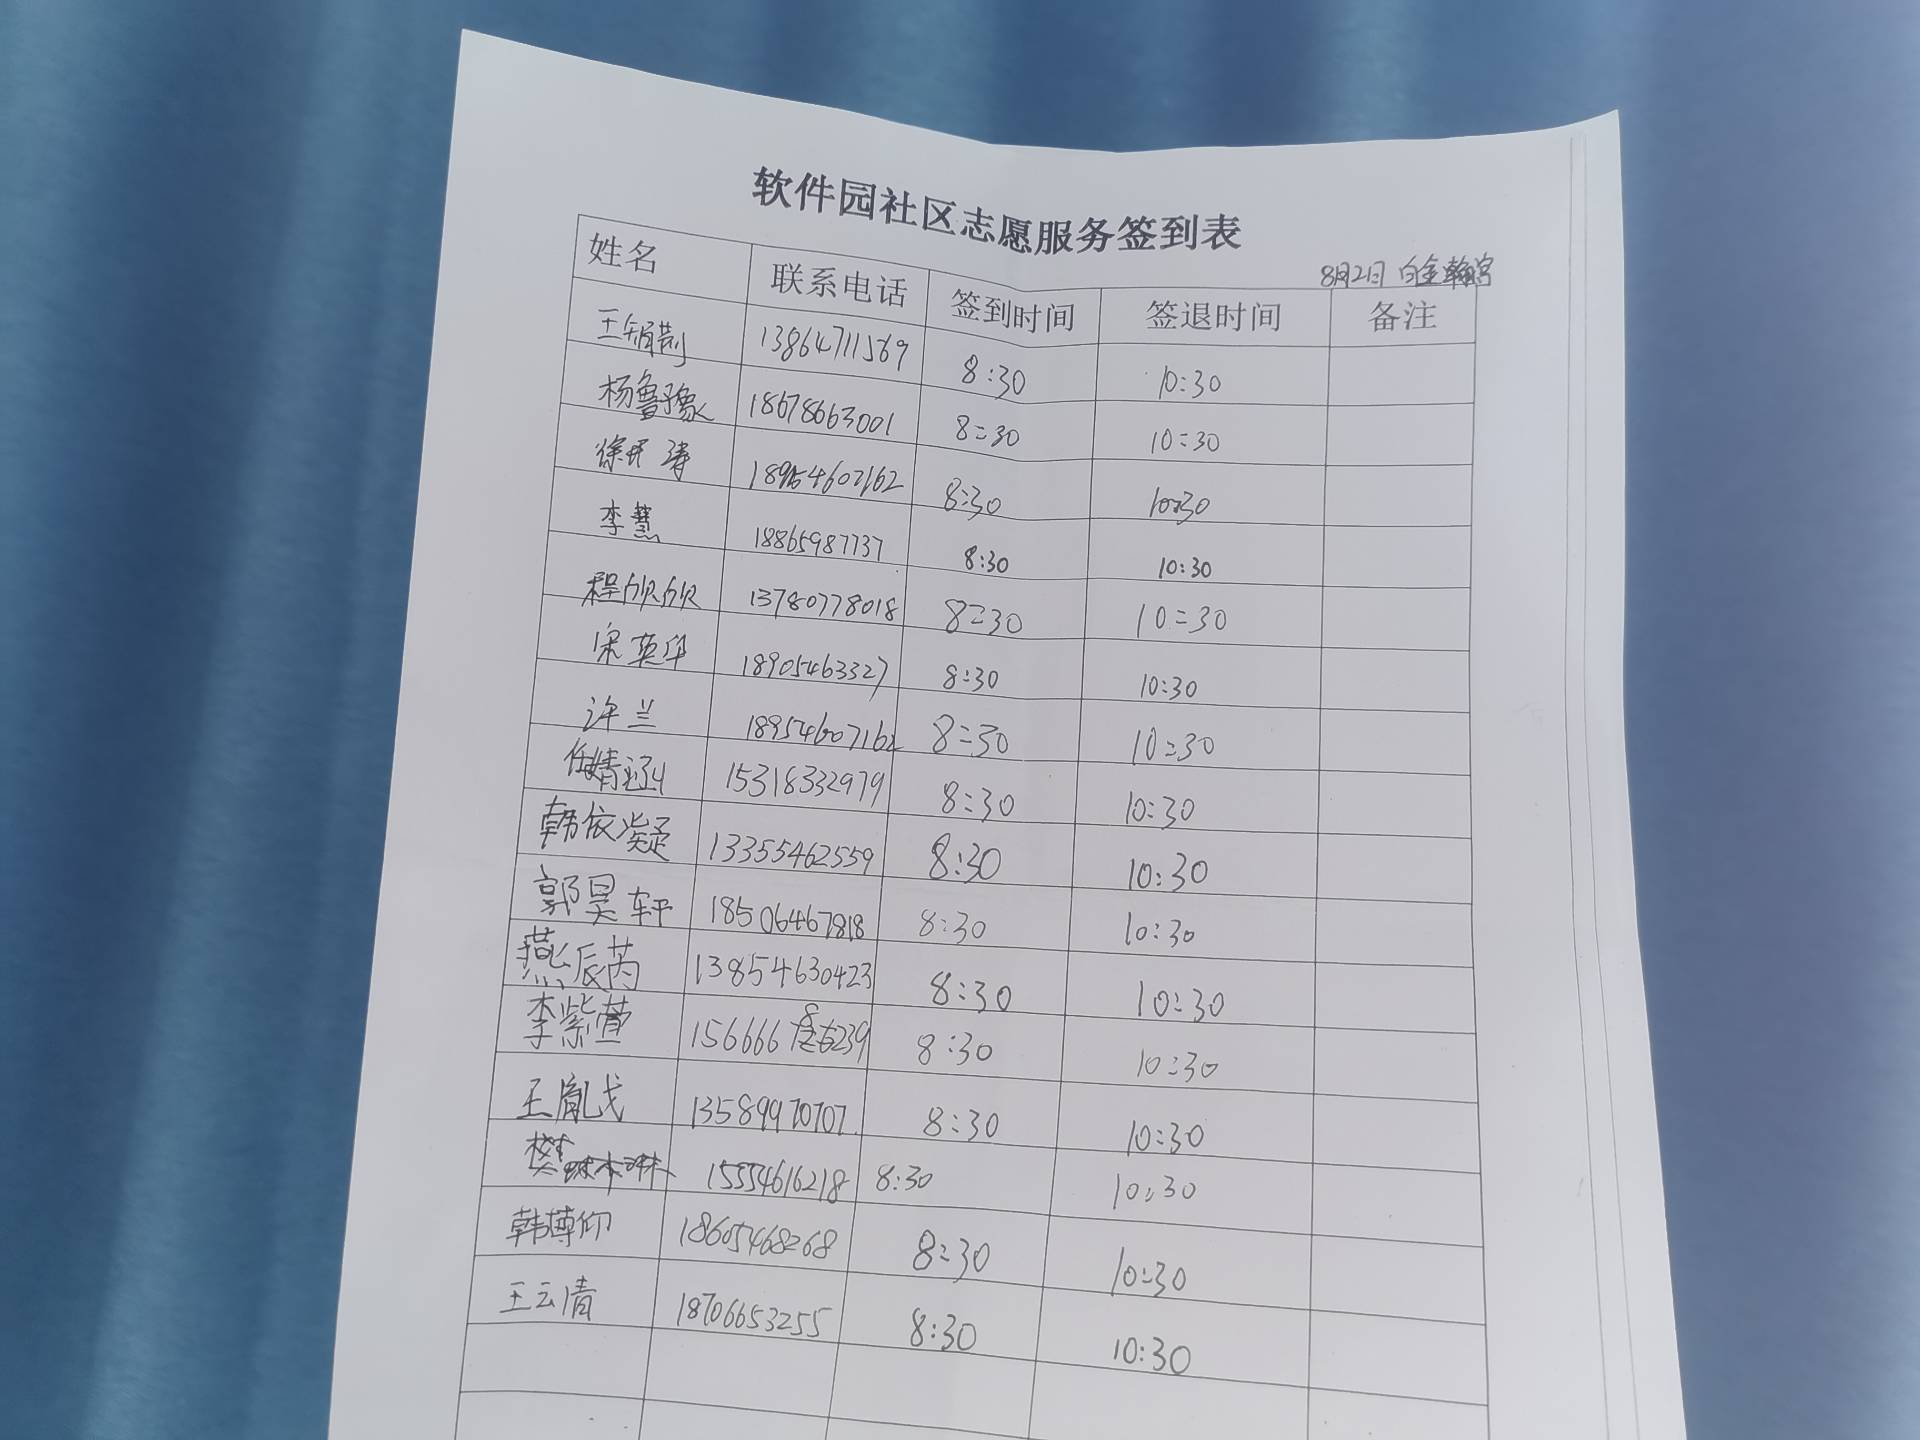 软件园社区志愿服务签到表
8月2日 白金翰宫
姓名 联系电话 签到时间 签退时间 备注
王 13864711569 8:30 10:30
杨鲁豫 18678663001 8:30 10:30
徐 涛 18954607162 8:30 10:30
李慧 18865987737 8:30 10:30
程欣欣 13780778018 8:30 10:30
宋英华 18905463327 8:30 10:30
许兰 18954607162 8:30 10:30
任婧涵 15318332979 8:30 10:30
韩依凝 13355462559 8:30 10:30
郭昊轩 18506467818 8:30 10:30
燕辰芮 13854630423 8:30 10:30
李紫萱 8:30 10:30
王胤戈 13589970707 8:30 10:30
樊 15554616218 8:30 10:30
韩博仰 18605468268 8:30 10:30
王云清 18706653255 8:30 10:30